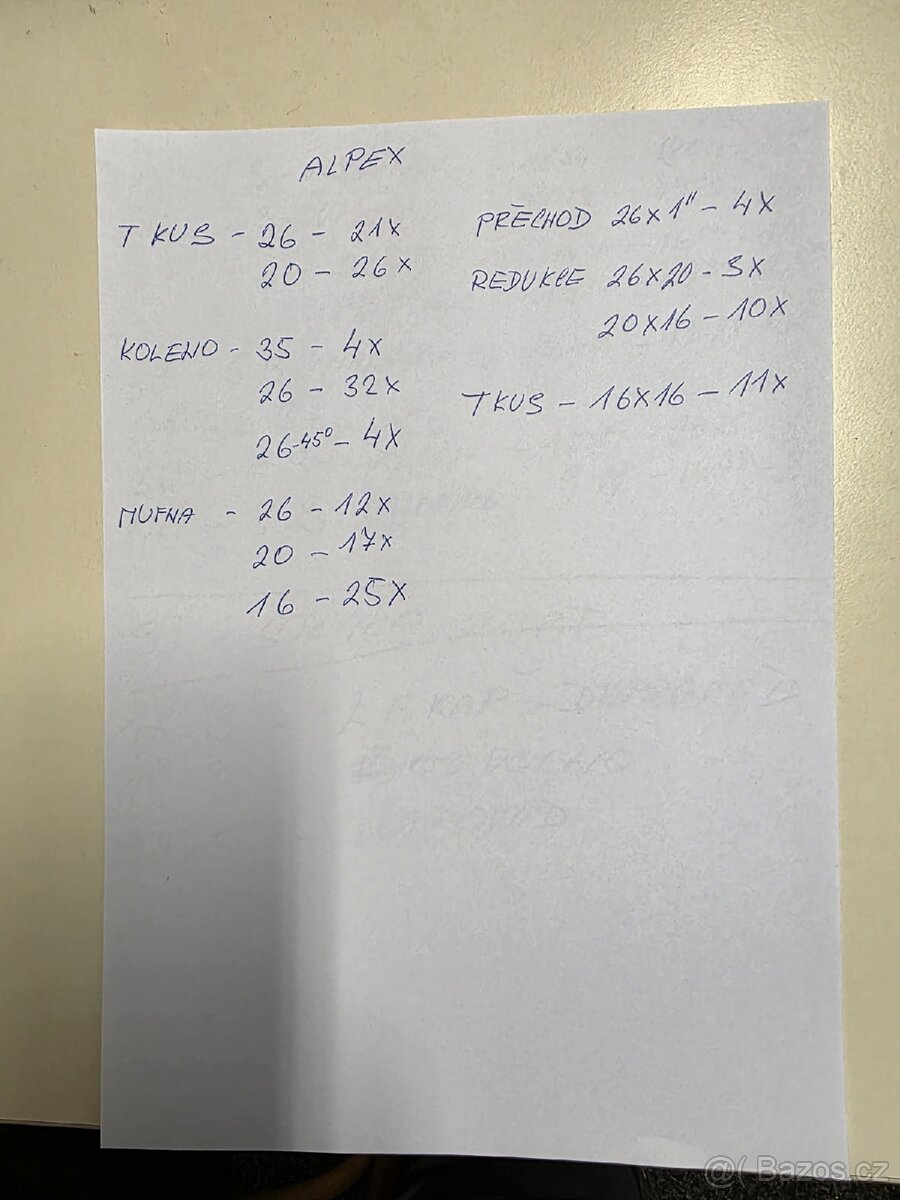 ALPEX
T KUS - 26 - 21x
20 - 26x
KOLENO - 35 - 4x
26 - 32x
26-45° - 4x
MUFNA - 26 - 12x
20 - 17x
16 - 25x
PŘECHOD 26x1" - 4x
REDUKCE 26x20 - 3x
20x16 - 10x
TKUS - 16x16 - 11x
@( Bazos.cz